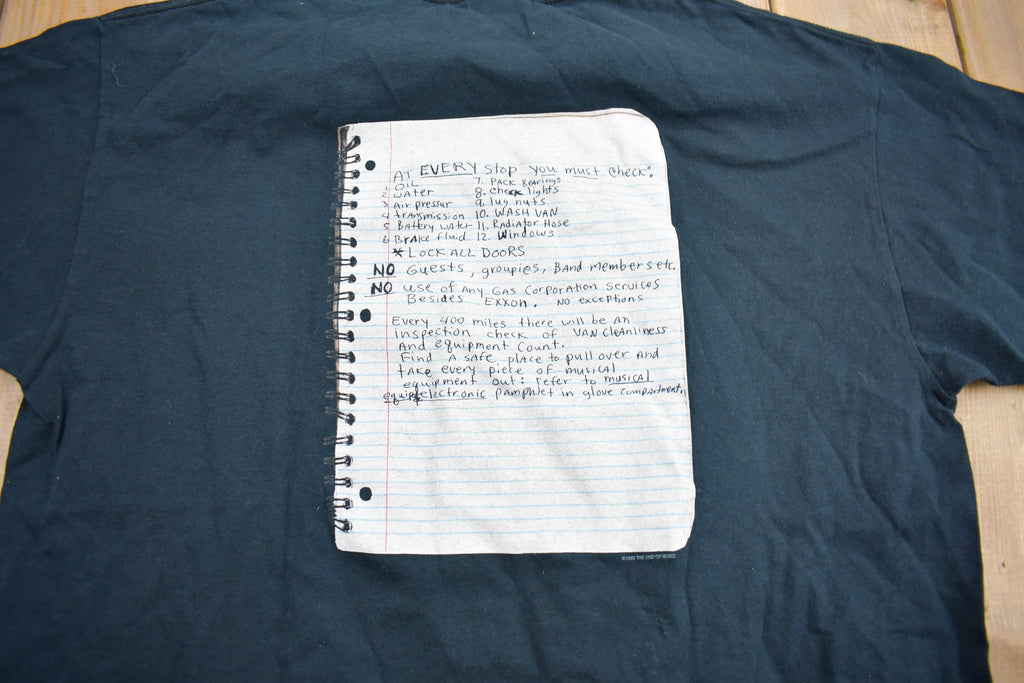 AT EVERY stop you must check:
1. OIL 7. PACK BeArings
2 WAter 8. Check lights
3 Air pressur 9. lug nuts
4 trAnsmission 10. WASH VAN
5 BAttery wAter 11. RAdiAtor Hose
6 BrAke fluid 12. Windows
* LOCK ALL DOORS
NO Guests, groupies, BAnd members etc.
NO use of Any GAS CorporAtion Services
Besides EXXon. NO exceptions
Every 400 miles there will be An
inspection check of VAN CleAnliness
And equipment Count.
Find A sAfe plAce to pull over And
tAke every piece of musicAl
equipment out: refer to musicAl
equip electronic pAmphlet in glove compArtment.
THE END OF MUSIC